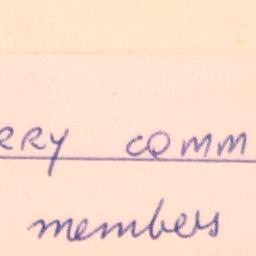 RRY COMM
members